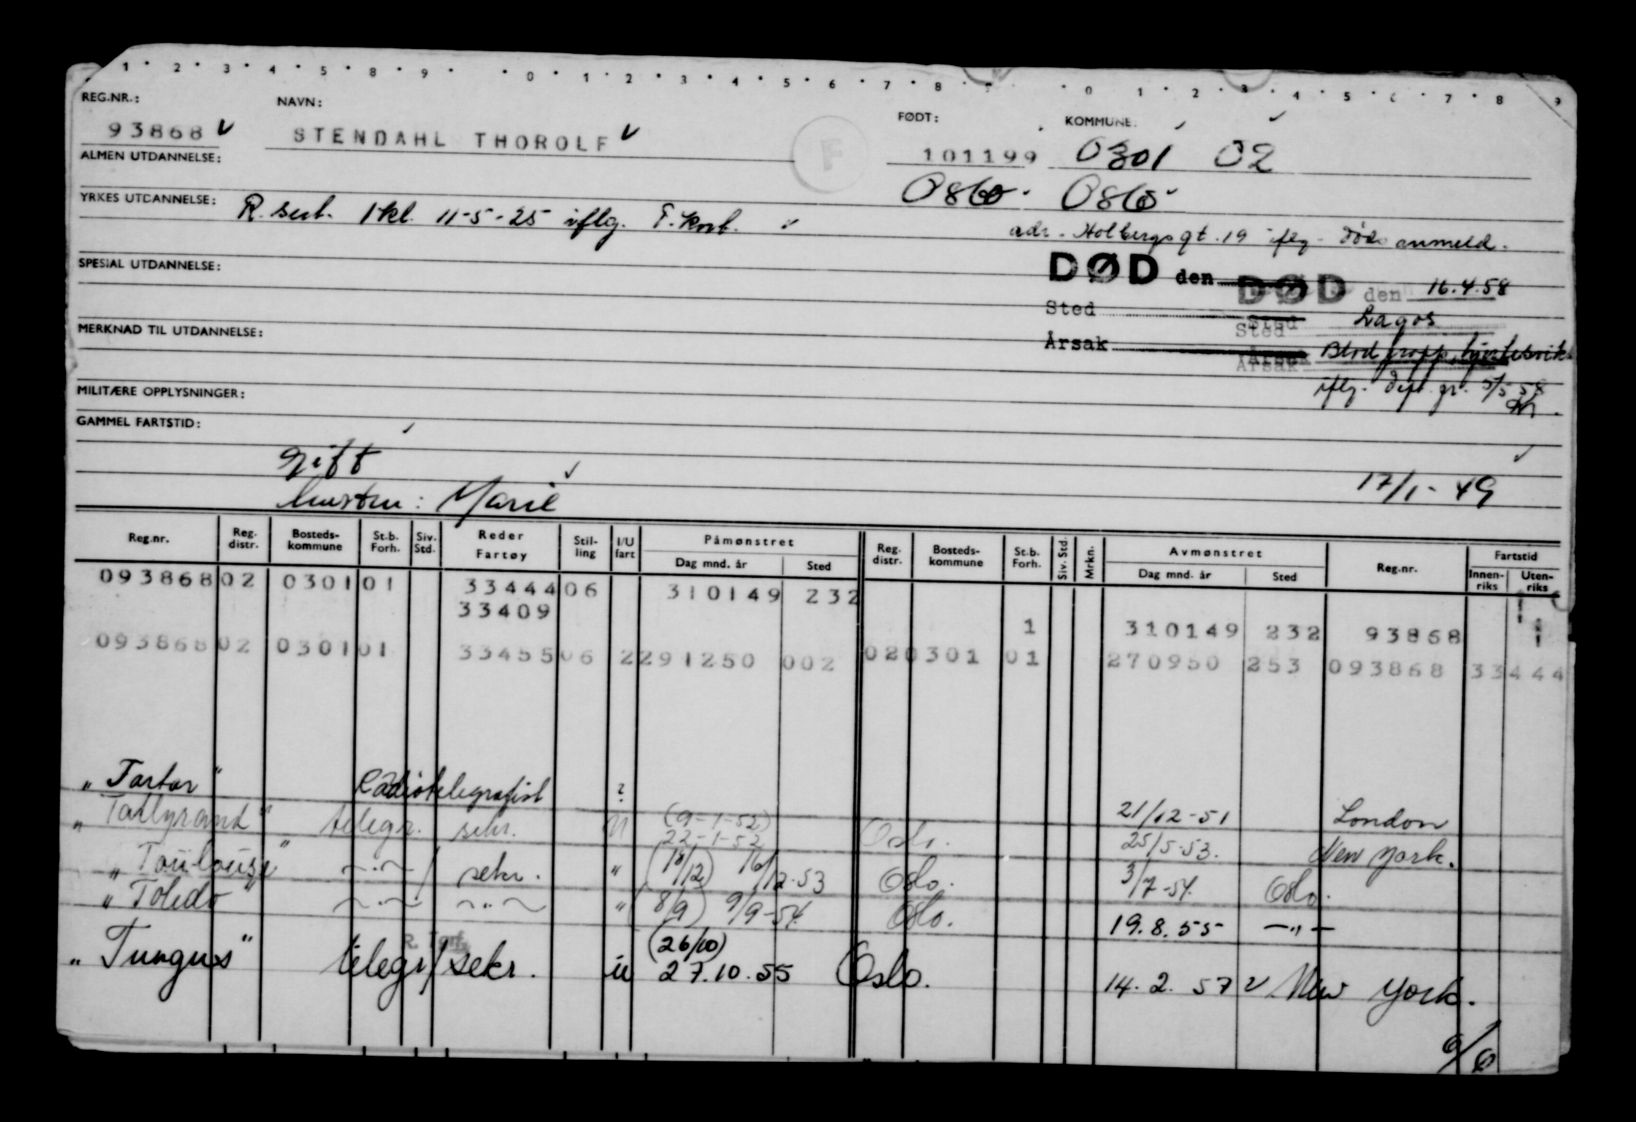 1 2 3 4 5 8 9 0 1 2 3 4 5 6 7 8 0 1 2 3 4 5 6 7 8 9
REG.NR.: NAVN: FØDT: KOMMUNE:
93868 STENDAHL THOROLF F 101199 0301 02
ALMEN UTDANNELSE:
YRKES UTDANNELSE: R. sert. 1 kl. 11-5-25 iflg. F. kort.
adr. Holbergsgt. 19 iflg. døds anmeld.
SPESIAL UTDANNELSE: DØD den DØD den 16.4.58
Sted Sted Lagos
MERKNAD TIL UTDANNELSE: Årsak Årsak Blodpropp, hjertesvik
MILITÆRE OPPLYSNINGER: iflg. 3/5 58
GAMMEL FARTSTID:
gift
hustru: Marie 17/1-49
Reg.nr. Reg. distr. Bosteds-kommune St.b. Forh. Siv. Std. Reder Fartøy Stil-ling I/U fart Påmønstret Dag mnd. år Sted Reg. distr. Bosteds-kommune St.b. Forh. Siv. Std. Mrkn. Avmønstret Dag mnd. år Sted Reg.nr. Fartstid Innen-riks Uten-riks
093868 02 0301 01 33444 06 310149 232
33409 1 310149 232 93868
093868 02 0301 01 33455 06 2 291250 002 02 0301 01 270950 253 093868 33444
"Tartar" Radiotelegrafist ? 21/12-51 London
"Talleyrand" telegr. sekr. U (9-1-52) 22-1-52 Oslo. 25/5-53. New York.
"Toulouse" -"- / sekr. " (18/12) 16/12-53 Oslo. 3/7-54. Oslo.
"Toledo" -"- -"- " (8/9) 9/9-54 Oslo. 19.8.55 -"-
"Tungus" telegr/sekr. u (26/10) 27.10.55 Oslo. 14.2.57 New York.
6/6